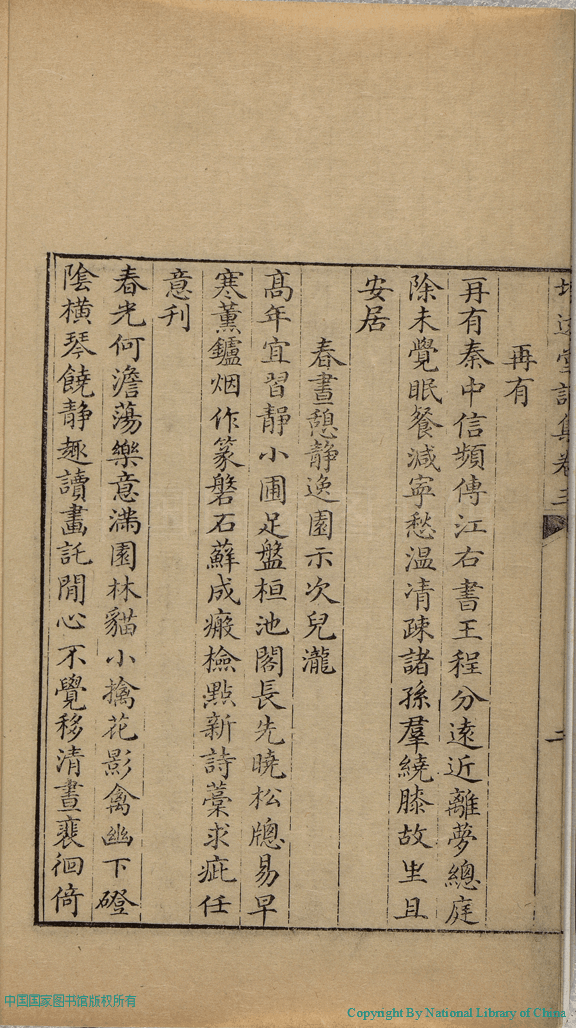 詩集卷三
二
再有
再有秦中信頻傳江右書王程分遠近離夢總庭
除未覺眠餐減寧愁温凊疎諸孫羣繞膝故里且
安居
春晝憩静逸園示次兒瀧
高年宜習靜小圃足盤桓池閣長先曉松牕易早
寒薰鑪烟作篆磐石蘚成瘢檢點新詩藁求疵任
意刊
春光何澹蕩樂意滿園林貓小擒花影禽幽下磴
陰橫琴饒静趣讀畫託閒心不覺移清晝裵徊倚
中国国家图书馆版权所有
Copyright By National Library of China